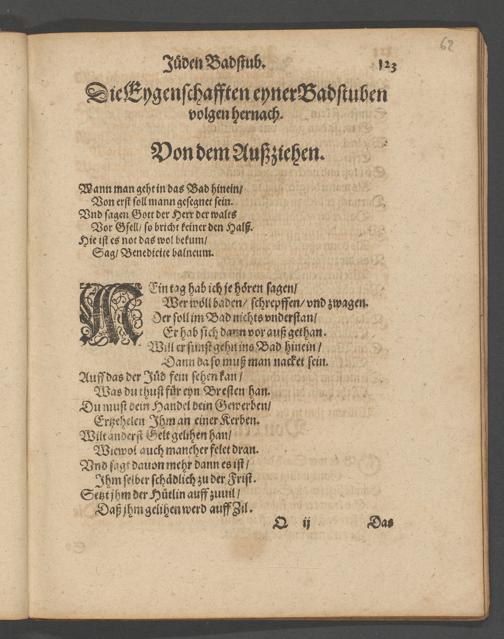 62
Jüden Badstub. 123
Die Eygenschafften eyner Badstuben
volgen hernach.
Von dem Außziehen.
Wann man geht in das Bad hinein/
Von erst soll mann gesegnet sein.
Vnd sagen Gott der Herr der walts
Vor Gsell/ so bricht keiner den Halß.
Hie ist es not das wol bekum/
Sag/ Benedicite balneum.
MEin tag hab ich je hören sagen/
Wer wöll baden/ schrepffen/ vnd zwagen.
Der soll im Bad nichts vnderstan/
Er hab sich dann vor auß gethan.
Will er sunst gehn ins Bad hinein/
Dann da so muß man nacket sein.
Auff das der Jüd fein sehen kan/
Was du thust für eyn Bresten han.
Du must dein Handel dein Gewerben/
Erzehelen Ihm an einer Kerben.
Wilt anderst Gelt gelihen han/
Wiewol auch mancher felet dran.
Vnd sagt dauon mehr dann es ist/
Ihm selber schädlich zu der Frist.
Setzt jhm der Hütlin auff zuuil/
Daß jhm gelihen werd auff Zil.
Q ij Das